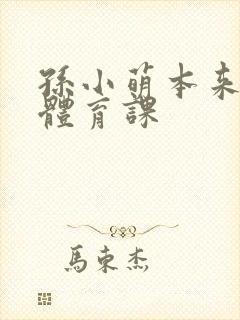 孫小萌本来
體育課
馬東杰